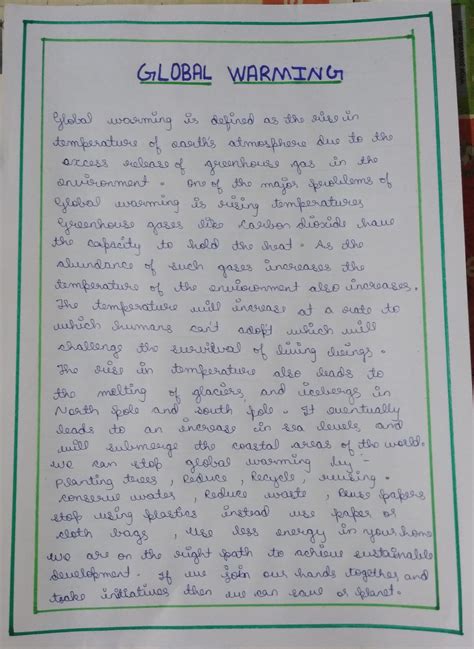 GLOBAL WARMING
Global warming is defined as the rise in
temperature of earth's atmosphere due to the
excess release of greenhouse gas in the
environment. One of the major problems of
Global warming is rising temperatures
Greenhouse gases like Carbon dioxide have
the capacity to hold the heat. As the
abundance of such gases increases the
temperature of the environment also increases.
The temperature will increase at a rate to
which humans can't adopt which will
challenge the survival of living beings.
The rise in temperature also leads to
the melting of glaciers, and icebergs in
North pole and south pole. It eventually
leads to an increase in sea levels, and
will submerge the coastal areas of the world.
We can stop global warming by :-
Planting trees, Reduce, Recycle, reusing.
conserve water, Reduce waste, Reuse papers
stop using plastics instead use paper or
cloth bags, Use less energy in your home
We are on the right path to achieve sustainable
development. If we join our hands together and
take initiatives then we can save or planet.